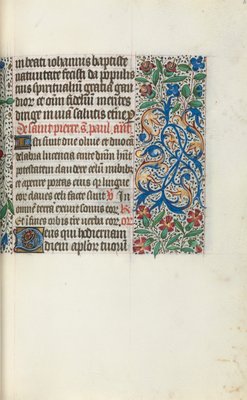 in beati iohannis baptiste
natiuitate fecisti da populis
tuis spiritualium gratiā gau
dior et oim fidelium mentes
dirige in uiā salutis etne p
De saint pierre s. paul. ant.
Isti sunt due oliue et duo can
delabra lucencia ante dnm hnt
potestatem claudere celū nubib
et aperire portas eius q lingue
eor claues celi facte sunt V In
omnem terrā exiuit sonus eor R
Et in fines orbis tre verba eor. or
Deus qui hodiernam
diem aplor tuorū